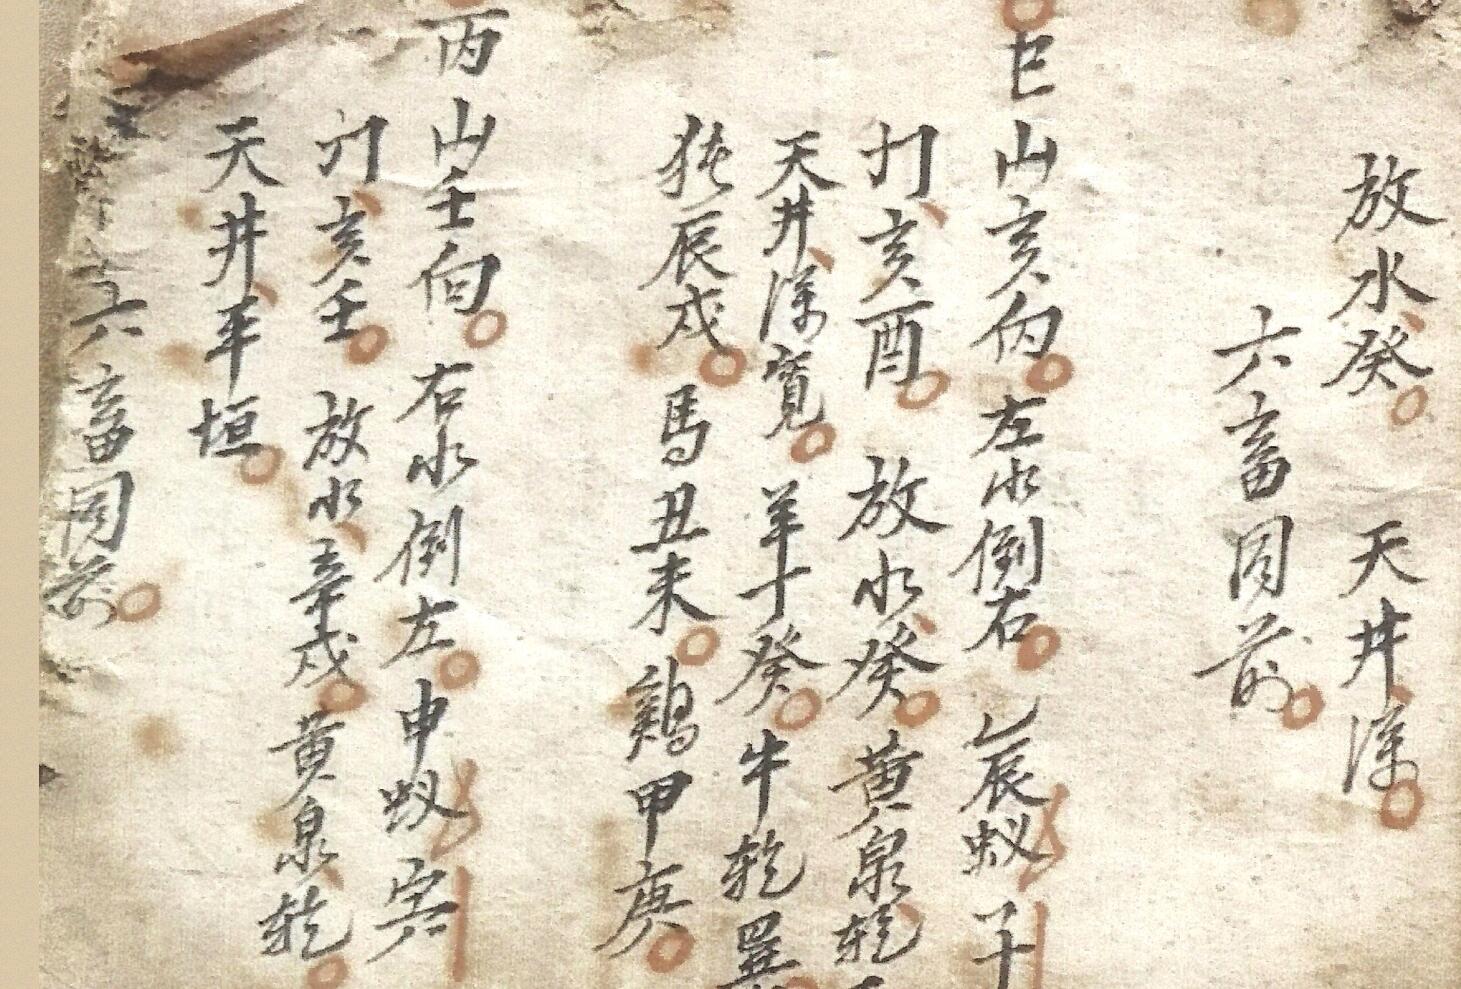 放水癸 天井深
六畜同前
巳山亥向 左水倒右 乙辰蚁 子
门亥酉 放水癸 黄泉乾
天井深寬 羊十癸 牛乾巽
猪辰戍 馬丑未 鷄甲庚
丙山壬向 右水倒左 申蚁寅
门亥壬 放水辛戍 黄泉乾
天井平垣
六畜同前